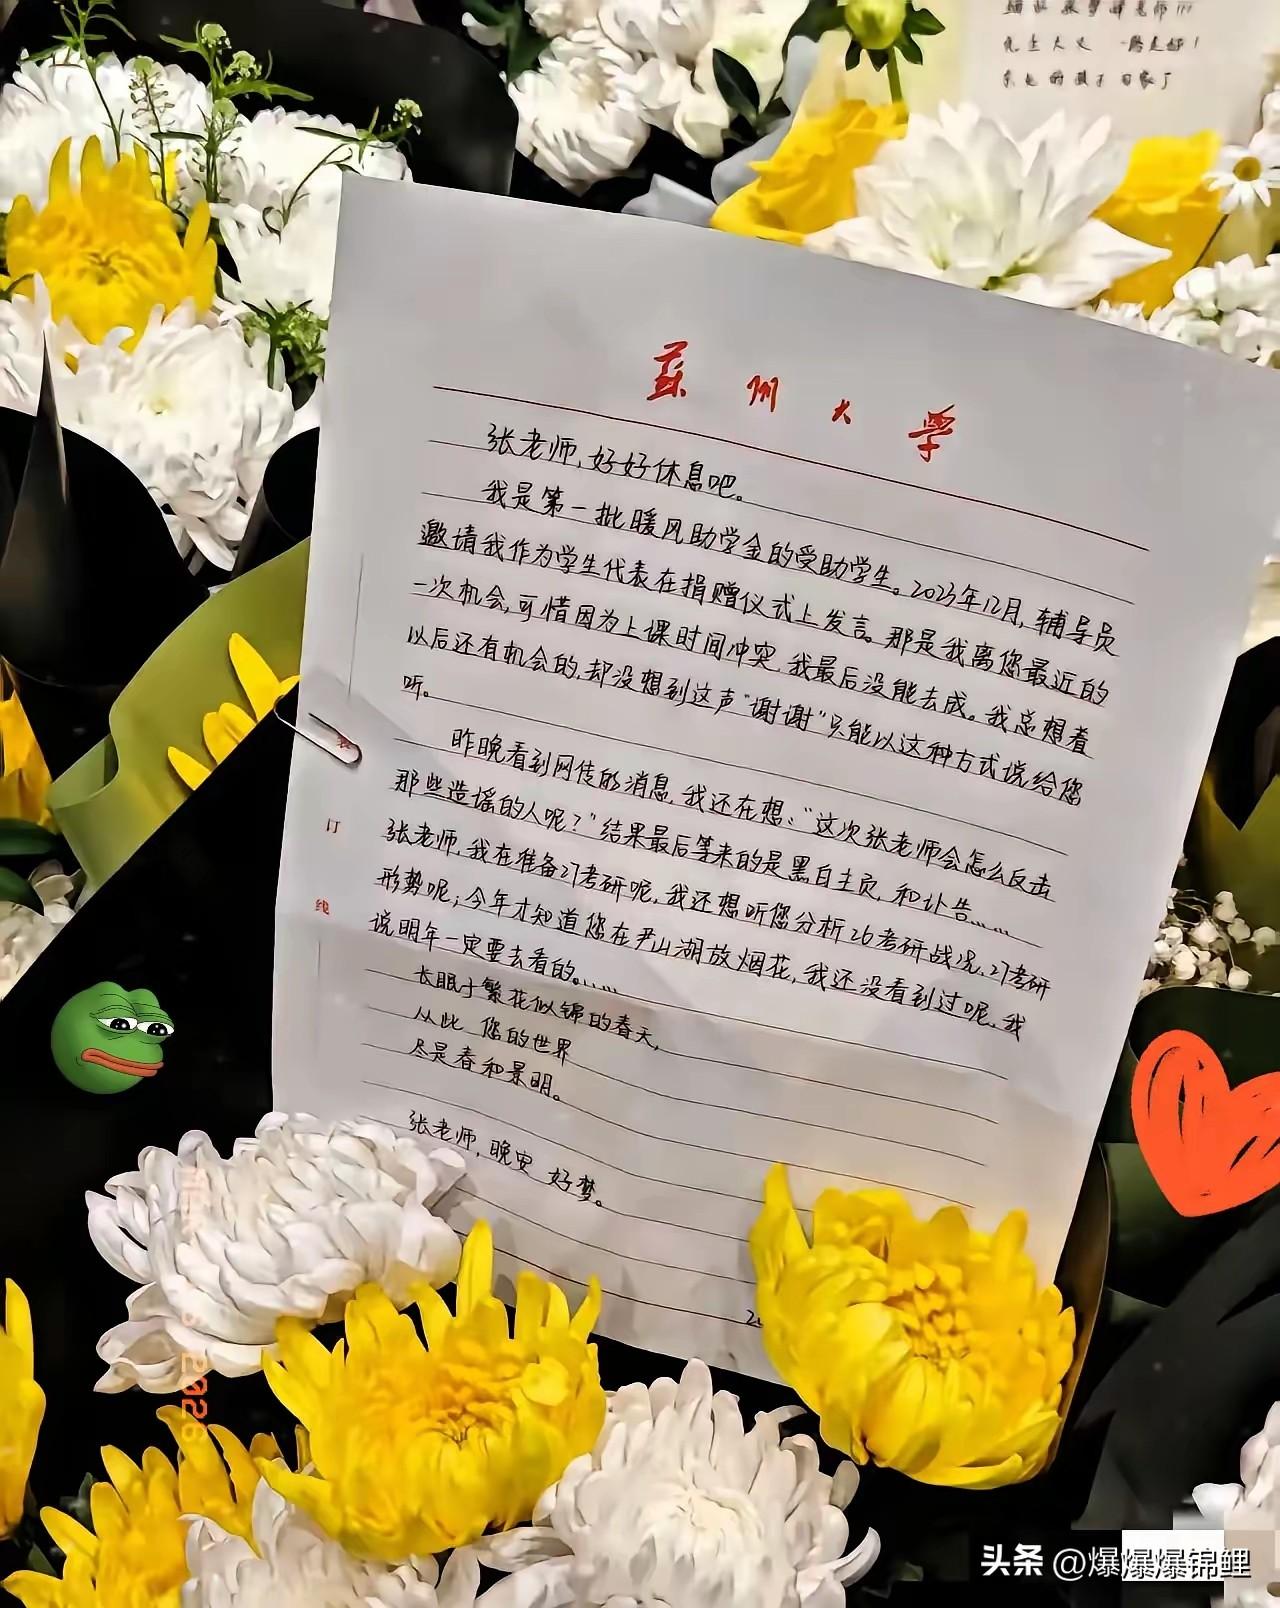 先生大义 一路走好!
东北的孩子回家了
蘇州大學
张老师,好好休息吧。
我是第一批暖风助学金的受助学生。2023年12月,辅导员
邀请我作为学生代表在捐赠仪式上发言。那是我离您最近的
一次机会,可惜因为上课时间冲突,我最后没能去成。我总想着
以后还有机会的,却没想到这声“谢谢”只能以这种方式说给您
听。
昨晚看到网传的消息,我还在想:“这次张老师会怎么反击
那些造谣的人呢?”结果最后等来的是黑白主页,和讣告……
张老师,我在准备27考研呢,我还想听您分析26考研战况、27考研
形势呢;今年才知道您在尹山湖放烟花,我还没看到过呢,我
说明年一定要去看的……
长眠于繁花似锦的春天,
从此 您的世界
尽是春和景明。
张老师,晚安 好梦。
装
订
线
2026
头条 @爆爆爆锦鲤